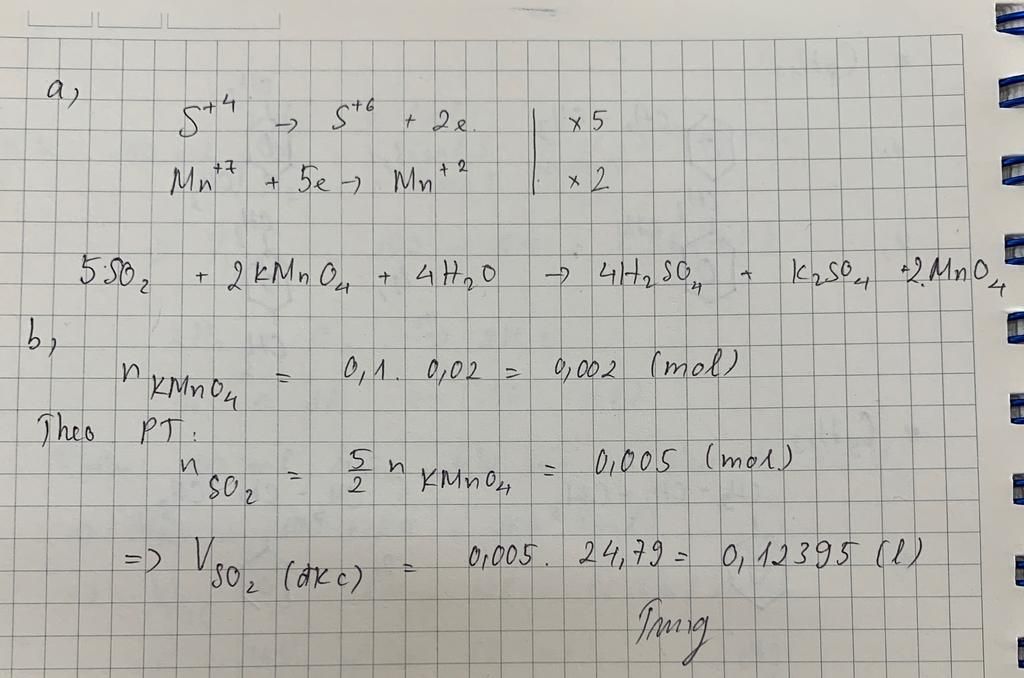 a,
S⁺⁴ → S⁺⁶ + 2e. | × 5
Mn⁺⁷ + 5e → Mn⁺² | × 2
5.SO₂ + 2KMnO₄ + 4H₂O → 4H₂SO₄ + K₂SO₄ +2.MnO₄
b,
n KMnO₄ = 0,1. 0,02 = 0,002 (mol)
Theo PT:
n SO₂ = 5/2 n KMnO₄ = 0,005 (mol)
=> V SO₂ (đkc) = 0,005. 24,79 = 0,12395 (l)